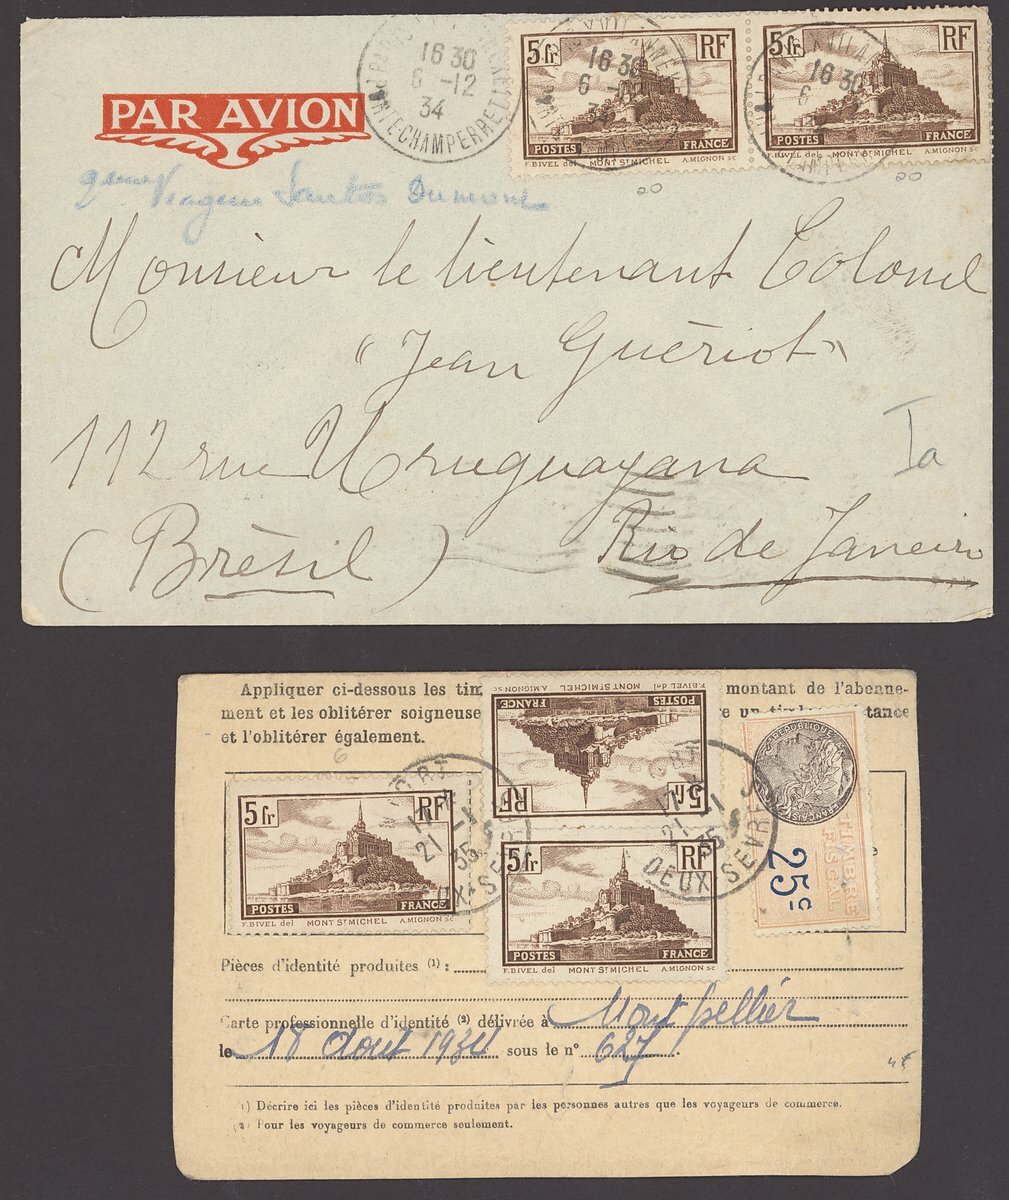 PAR AVION
16 30
6 -12
34
CHAMPERRET
5 fr RF
POSTES FRANCE
F. BIVEL del MONT ST MICHEL A. MIGNON sc
16 30
34
5 fr RF
POSTES FRANCE
F. BIVEL del MONT ST MICHEL A. MIGNON sc
16 30
20
20
2ème Viagem Santos Dumont
Monsieur le lieutenant Colonel
"Jean Guériot"
112 rue Uruguayana
Ia
(Brésil) Rio de Janeiro
Appliquer ci-dessous les tim montant de l'abonne-
ment et les oblitérer soigneuse
et l'oblitérer également.
F. BIVEL del MONT ST MICHEL A. MIGNON sc
POSTES FRANCE
5 fr RF
5 fr RF
POSTES FRANCE
F. BIVEL del MONT ST MICHEL A. MIGNON sc
5 fr RF
POSTES FRANCE
F. BIVEL del MONT ST MICHEL A. MIGNON sc
21 -1
35
21 -1
35
DEUX-SEVRES
TIMBRE
FISCAL
25 c
Pièces d'identité produites (1) :
Carte professionnelle d'identité (2) délivrée à Montpellier
le 18 aout 1934 sous le n° 627.
(1) Décrire ici les pièces d'identité produites par les personnes autres que les voyageurs de commerce.
(2) Pour les voyageurs de commerce seulement.